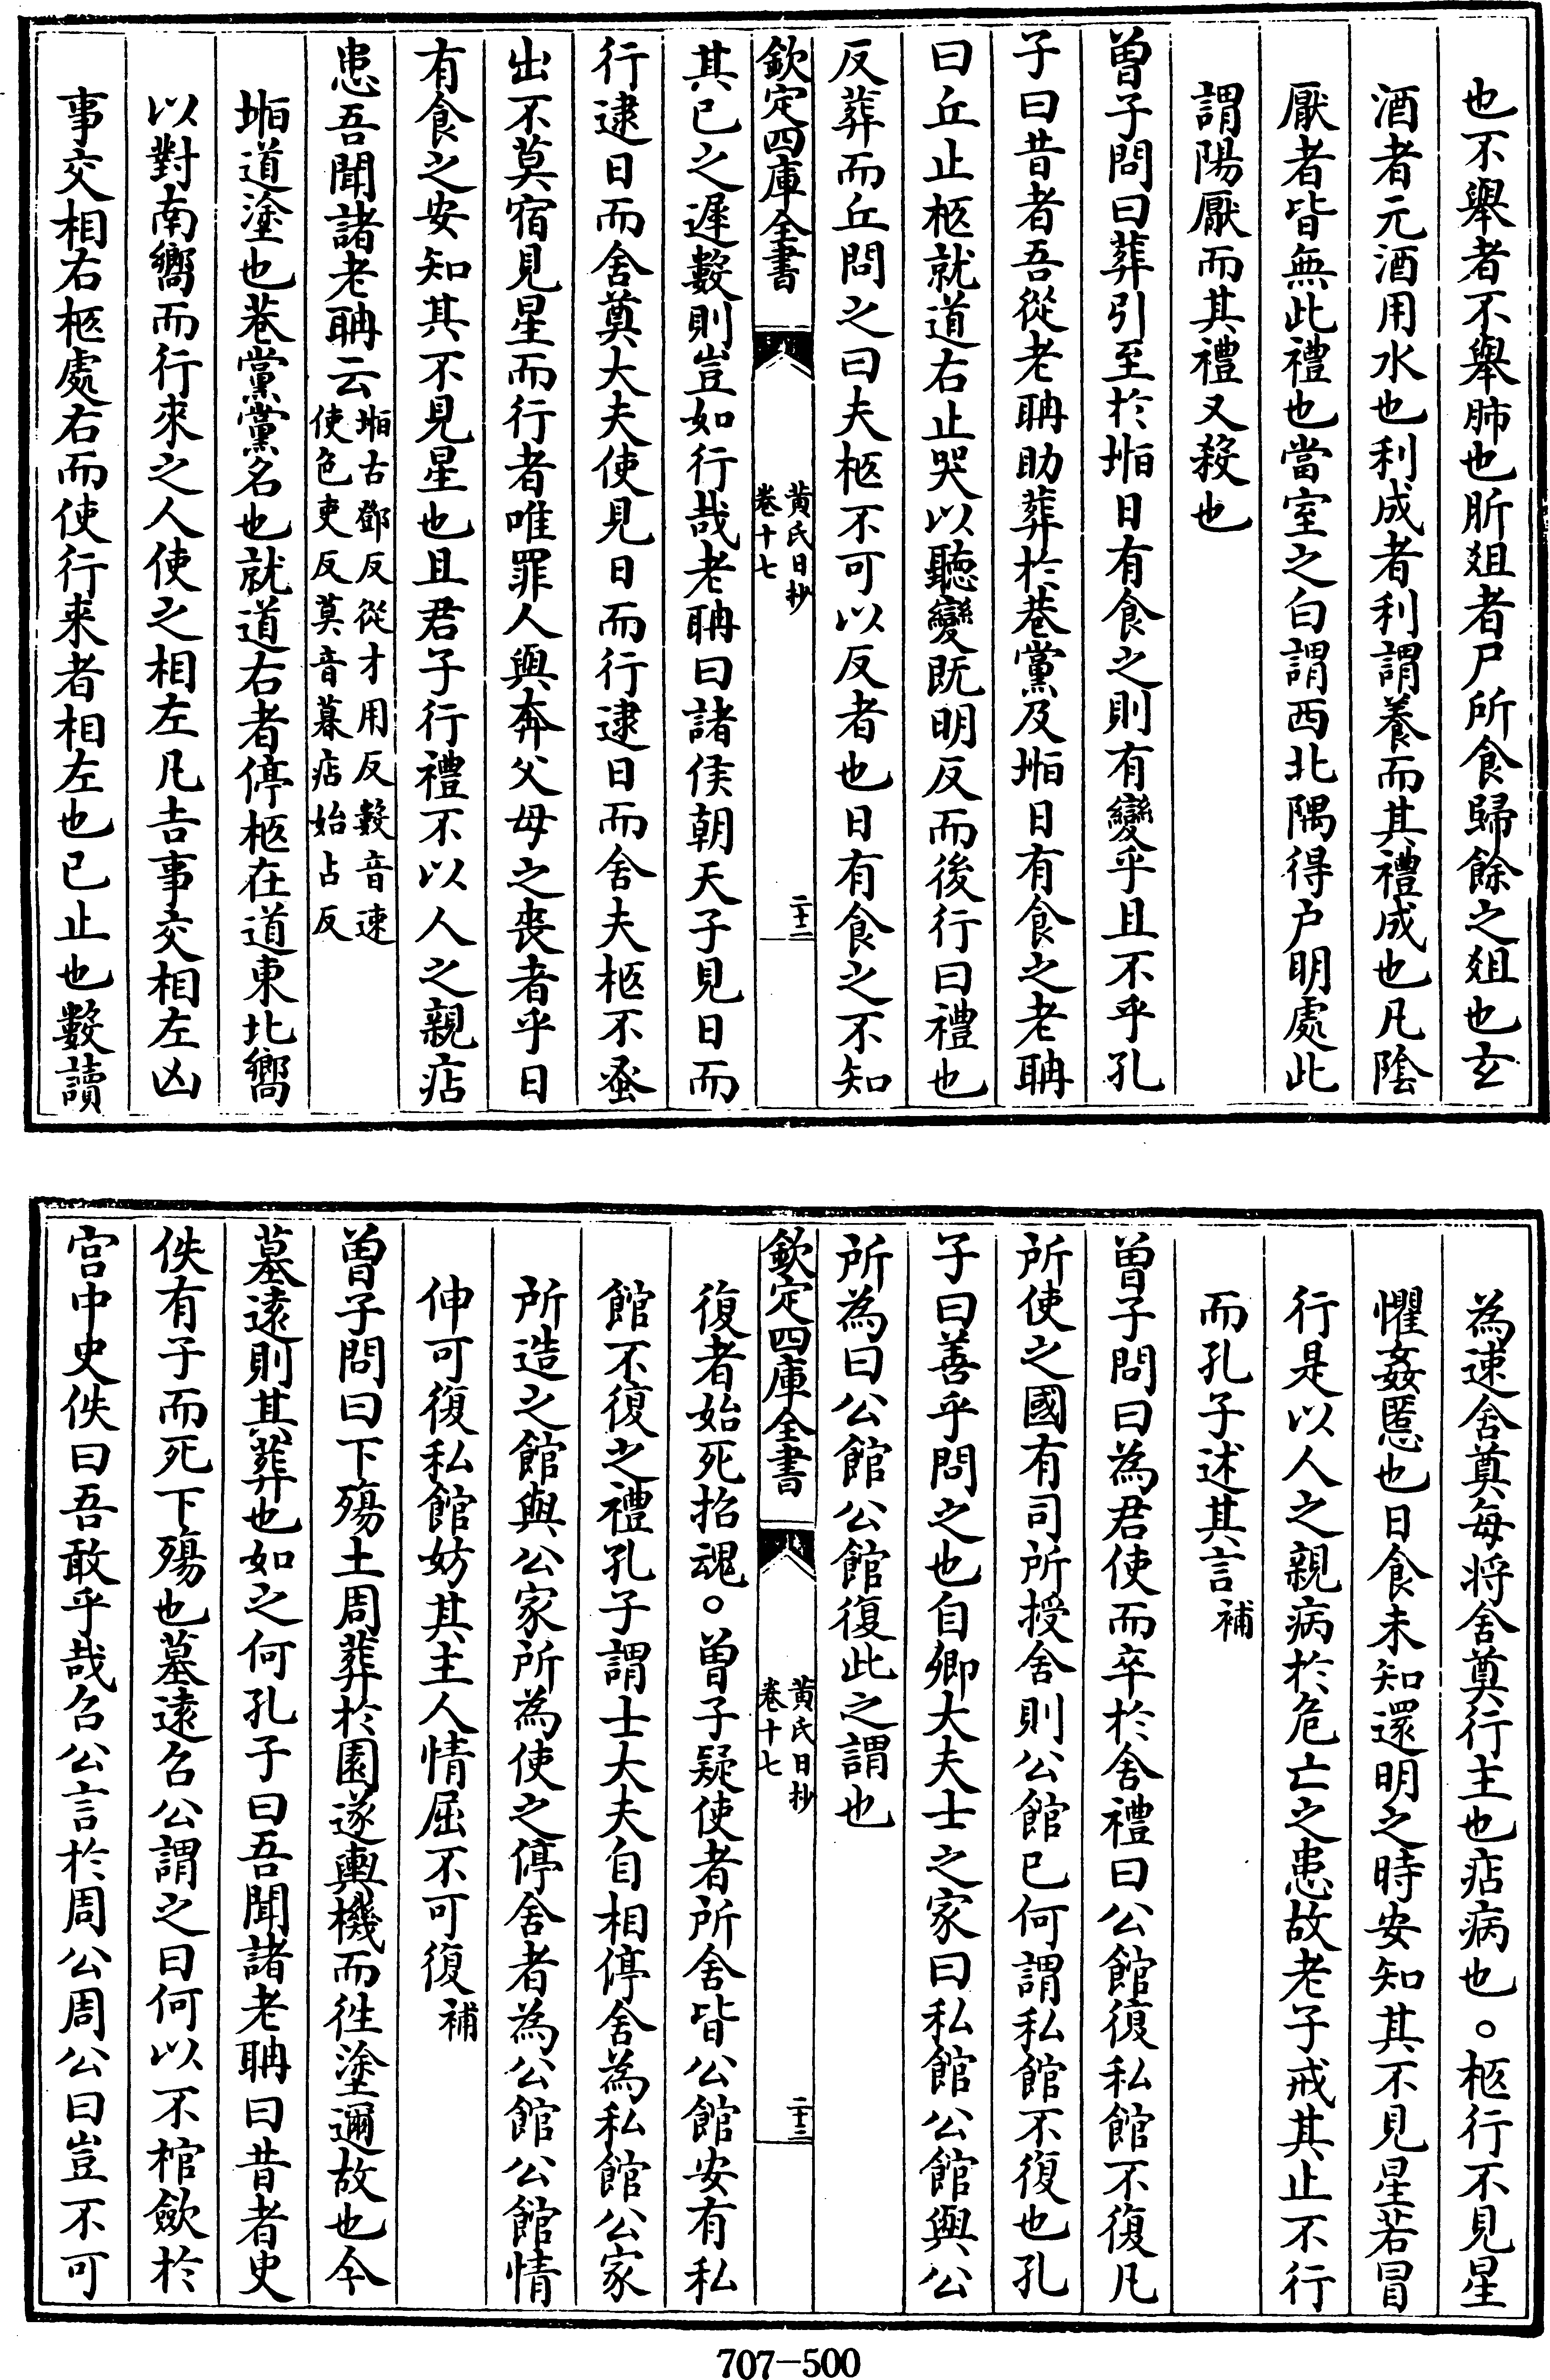 也不舉者不舉肺也肵俎者尸所食歸餘之俎也玄
酒者元酒用水也利成者利謂養而其禮成也凡陰
厭者皆無此禮也當室之白謂西北隅得户明處此
謂陽厭而其禮又殺也
曽子問曰葬引至於堩日有食之則有變乎且不乎孔
子曰昔者吾從老聃助葬於巷黨及堩日有食之老聃
曰丘止柩就道右止哭以聽變既明反而後行曰禮也
反葬而丘問之曰夫柩不可以反者也日有食之不知
欽定四庫全書
黄氏日抄
卷十七
二十二
其已之遲數則豈如行哉老聃曰諸侯朝天子見日而
行逮日而舍奠大夫使見日而行逮日而舍夫柩不蚤
出不莫宿見星而行者唯罪人與奔父母之喪者乎日
有食之安知其不見星也且君子行禮不以人之親痁
患吾聞諸老聃云
堩古鄧反從才用反數音速
使色吏反莫音暮痁始占反
堩道塗也巷黨黨名也就道右者停柩在道東北嚮
以對南嚮而行來之人使之相左凡吉事交相左凶
事交相右柩處右而使行来者相左也已止也數讀
為速舍奠每将舍奠行主也痁病也○柩行不見星
懼姦慝也日食未知還明之時安知其不見星若冒
行是以人之親病於危亡之患故老子戒其止不行
而孔子述其言補
曽子問曰為君使而卒於舍禮曰公館復私館不復凡
所使之國有司所授舍則公館已何謂私館不復也孔
子曰善乎問之也自卿大夫士之家曰私館公館與公
所為曰公館公館復此之謂也
欽定四庫全書
黄氏日抄
卷十七
二十三
復者始死招魂○曽子疑使者所舍皆公館安有私
館不復之禮孔子謂士大夫自相停舍為私館公家
所造之館與公家所為使之停舍者為公館公館情
伸可復私館妨其主人情屈不可復補
曽子問曰下殤土周葬於園遂輿機而徃塗邇故也今
墓逺則其葬也如之何孔子曰吾聞諸老聃曰昔者史
佚有子而死下殤也墓逺召公謂之曰何以不棺斂於
宫中史佚曰吾敢乎哉召公言於周公周公曰豈不可
707-500